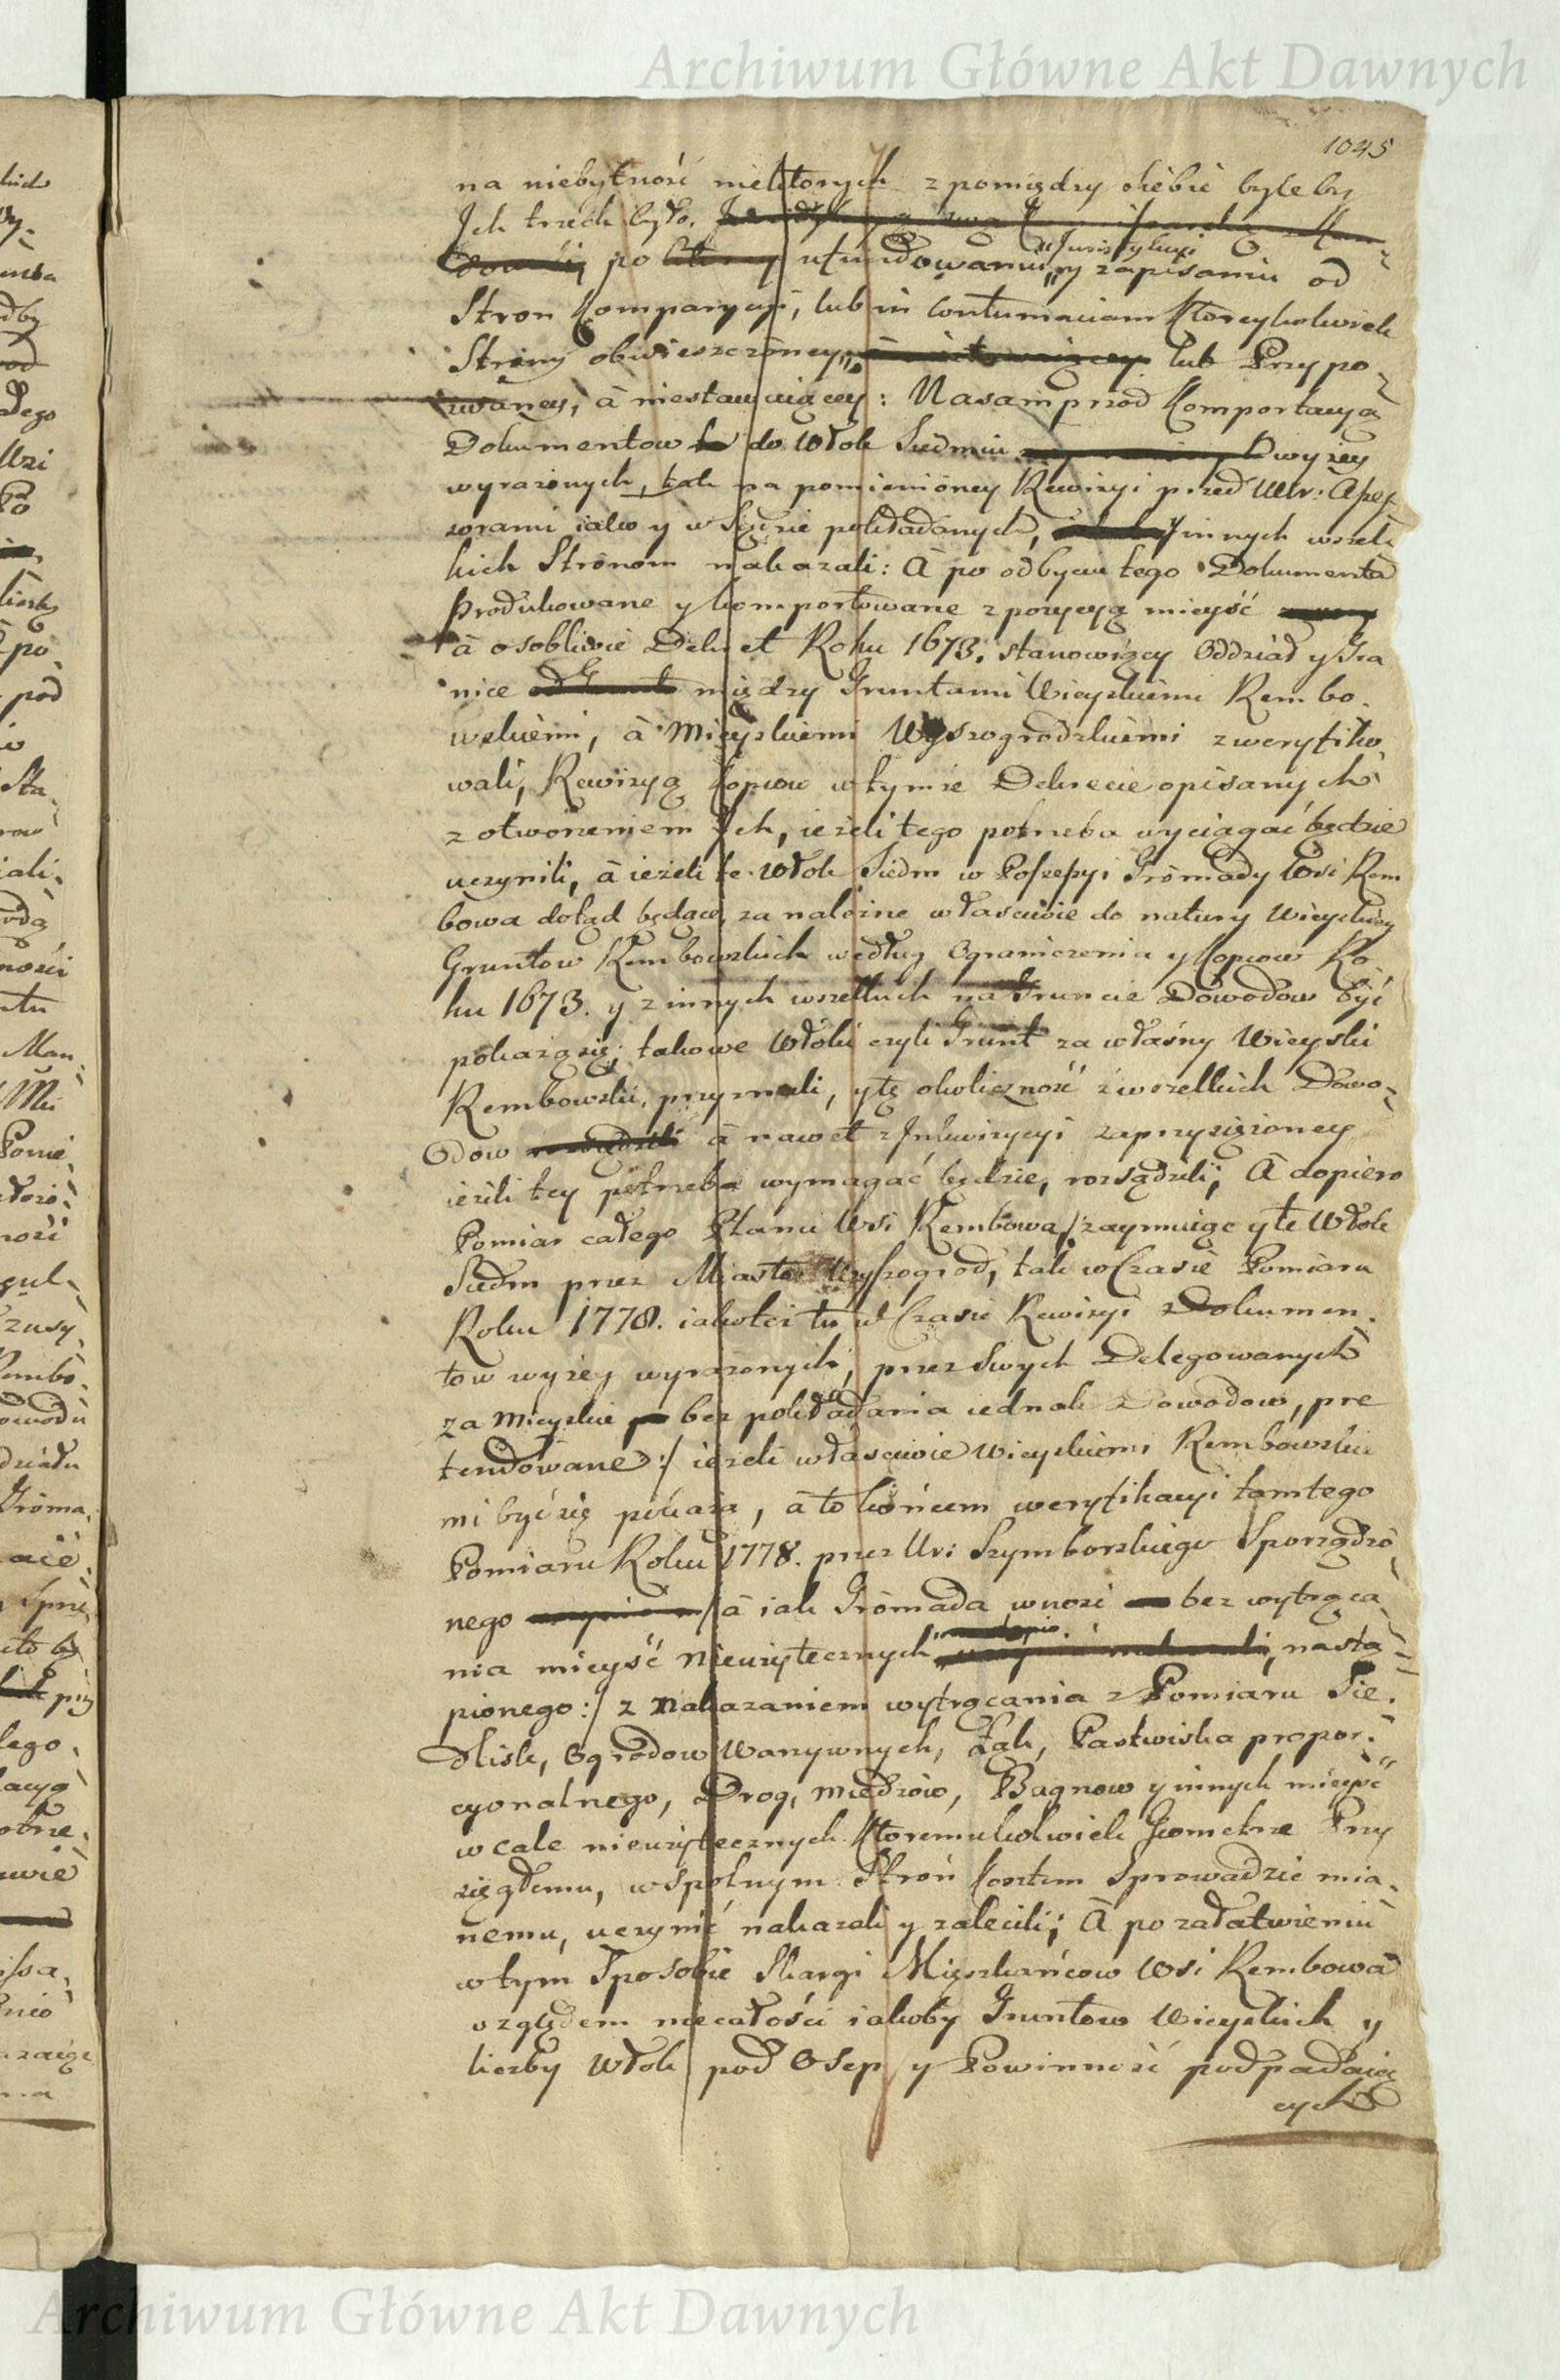 Archiwum Główne Akt Dawnych
1045
na niebytność niektorych z pomiędzy siebie byleby
Ich trzech było.
po ufundowaniu „Jurisdykcyi y zapisaniu od
Stron Komparycyi, lub in Contumaciam Ktoreykolwiek
Strony obwieszczoney, lub Przypo-
zwaney, à niestawaiącey: Nasamprzod Komportacyą
Dokumentow do Włok Siedmiu wyzey
wyrażonych, tak na pomienioney Rewizyi przed Ur: Asses-
sorami iako y w Sądzie pokładanych, y innych wszel-
kich Stronom nakazali: à po odbyciu tego Dokumenta
Produkowane y komportowane z pozycyą mieysć
à osobliwie Dekret Roku 1673. stanowiący Oddział y Gra
nice między Gruntami Wieyskiemi Rembo-
wskiemi, à Mieyskiemi Wyszogrodzkiemi zweryfiko-
wali, Rewizyą Kopcow w tymże Dekrecie opisanych
z otworzeniem Ich, ieżeli tego potrzeba wyciągać będzie
uczynili, à ieżeli te Włok Siedm w Possessyi Gromady Wsi Rem
bowa dotąd będące, za należne właściwie do natury Wieyskiey
Gruntow Rembowskich według Ograniczenia y Kopcow Ro-
ku 1673. y z innych wszelkich na Gruncie Dowodow być
pokażą się; takowe Włoki czyli Grunt za własny Wieyski
Rembowski, przyznali, y tę okoliczność z wszelkich Dowo-
dow à nawet z Inkwizycyi zaprzysiężoney
ieżeli tey potrzeba wymagać będzie, rozsądzili; à dopiero
Pomiar całego Planu Wsi Rembowa /: zaymuiąc y te Włok
Siedm przez Miasto Wyszogrod, tak w Czasie Pomiaru
Roku 1778. iakoteż tu w Czasie Rewizyi Dokumen-
tow wyżey wyrażonych, przez Swych Delegowanych
za Mieyskie bez pokładania iednak Dowodow, pre
tendowane :/ ieżeli właściwie Wieyskiemi Rembowskie
mi być się pokażą, à to końcem weryfikacyi tamtego
Pomiaru Roku 1778. przez Ur: Szymborskiego Sporządzo-
nego /: à iak Gromada wnosi bez wytrąca-
nia mieysć Nieużytecznych nastą-
pionego :/ z Nakazaniem wytrącania z Pomiaru Sie-
dlisk, Ogrodow Warzywnych, Łąk, Pastwiska propor-
cyonalnego, Drog, Miedzow, Bagnow y innych mieysć
w cale nieużytecznych Ktoremukolwiek Jeometrze Przy
sięgłemu, wspolnym Stron Kosztem Sprowadzić mia-
nemu, uczynić nakazali y zalecili; à po załatwieniu
w tym Sposobie Skargi Mięszkańcow Wsi Rembowa
względem niecałości iakoby Gruntow Wieyskich y
liczby Włok pod Osep y Powinność podpadaią
cych
Archiwum Główne Akt Dawnych